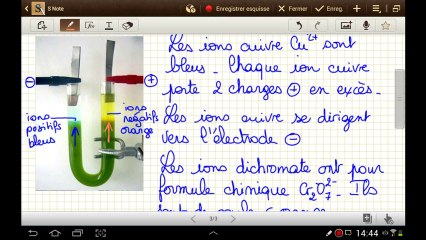 S Note
Enregistrer esquisse
Fermer
Enreg.
Les ions cuivre Cu²⁺ sont
bleus. Chaque ion cuivre
porte 2 charges ⊕ en excès.
Les ions cuivre se dirigent
vers l'électrode ⊖
Les ions dichromate ont pour
formule chimique Cr₂O₇²⁻. Ils
⊖
⊕
ions
positifs
bleus
ions
négatifs
orange
3/3
14:44